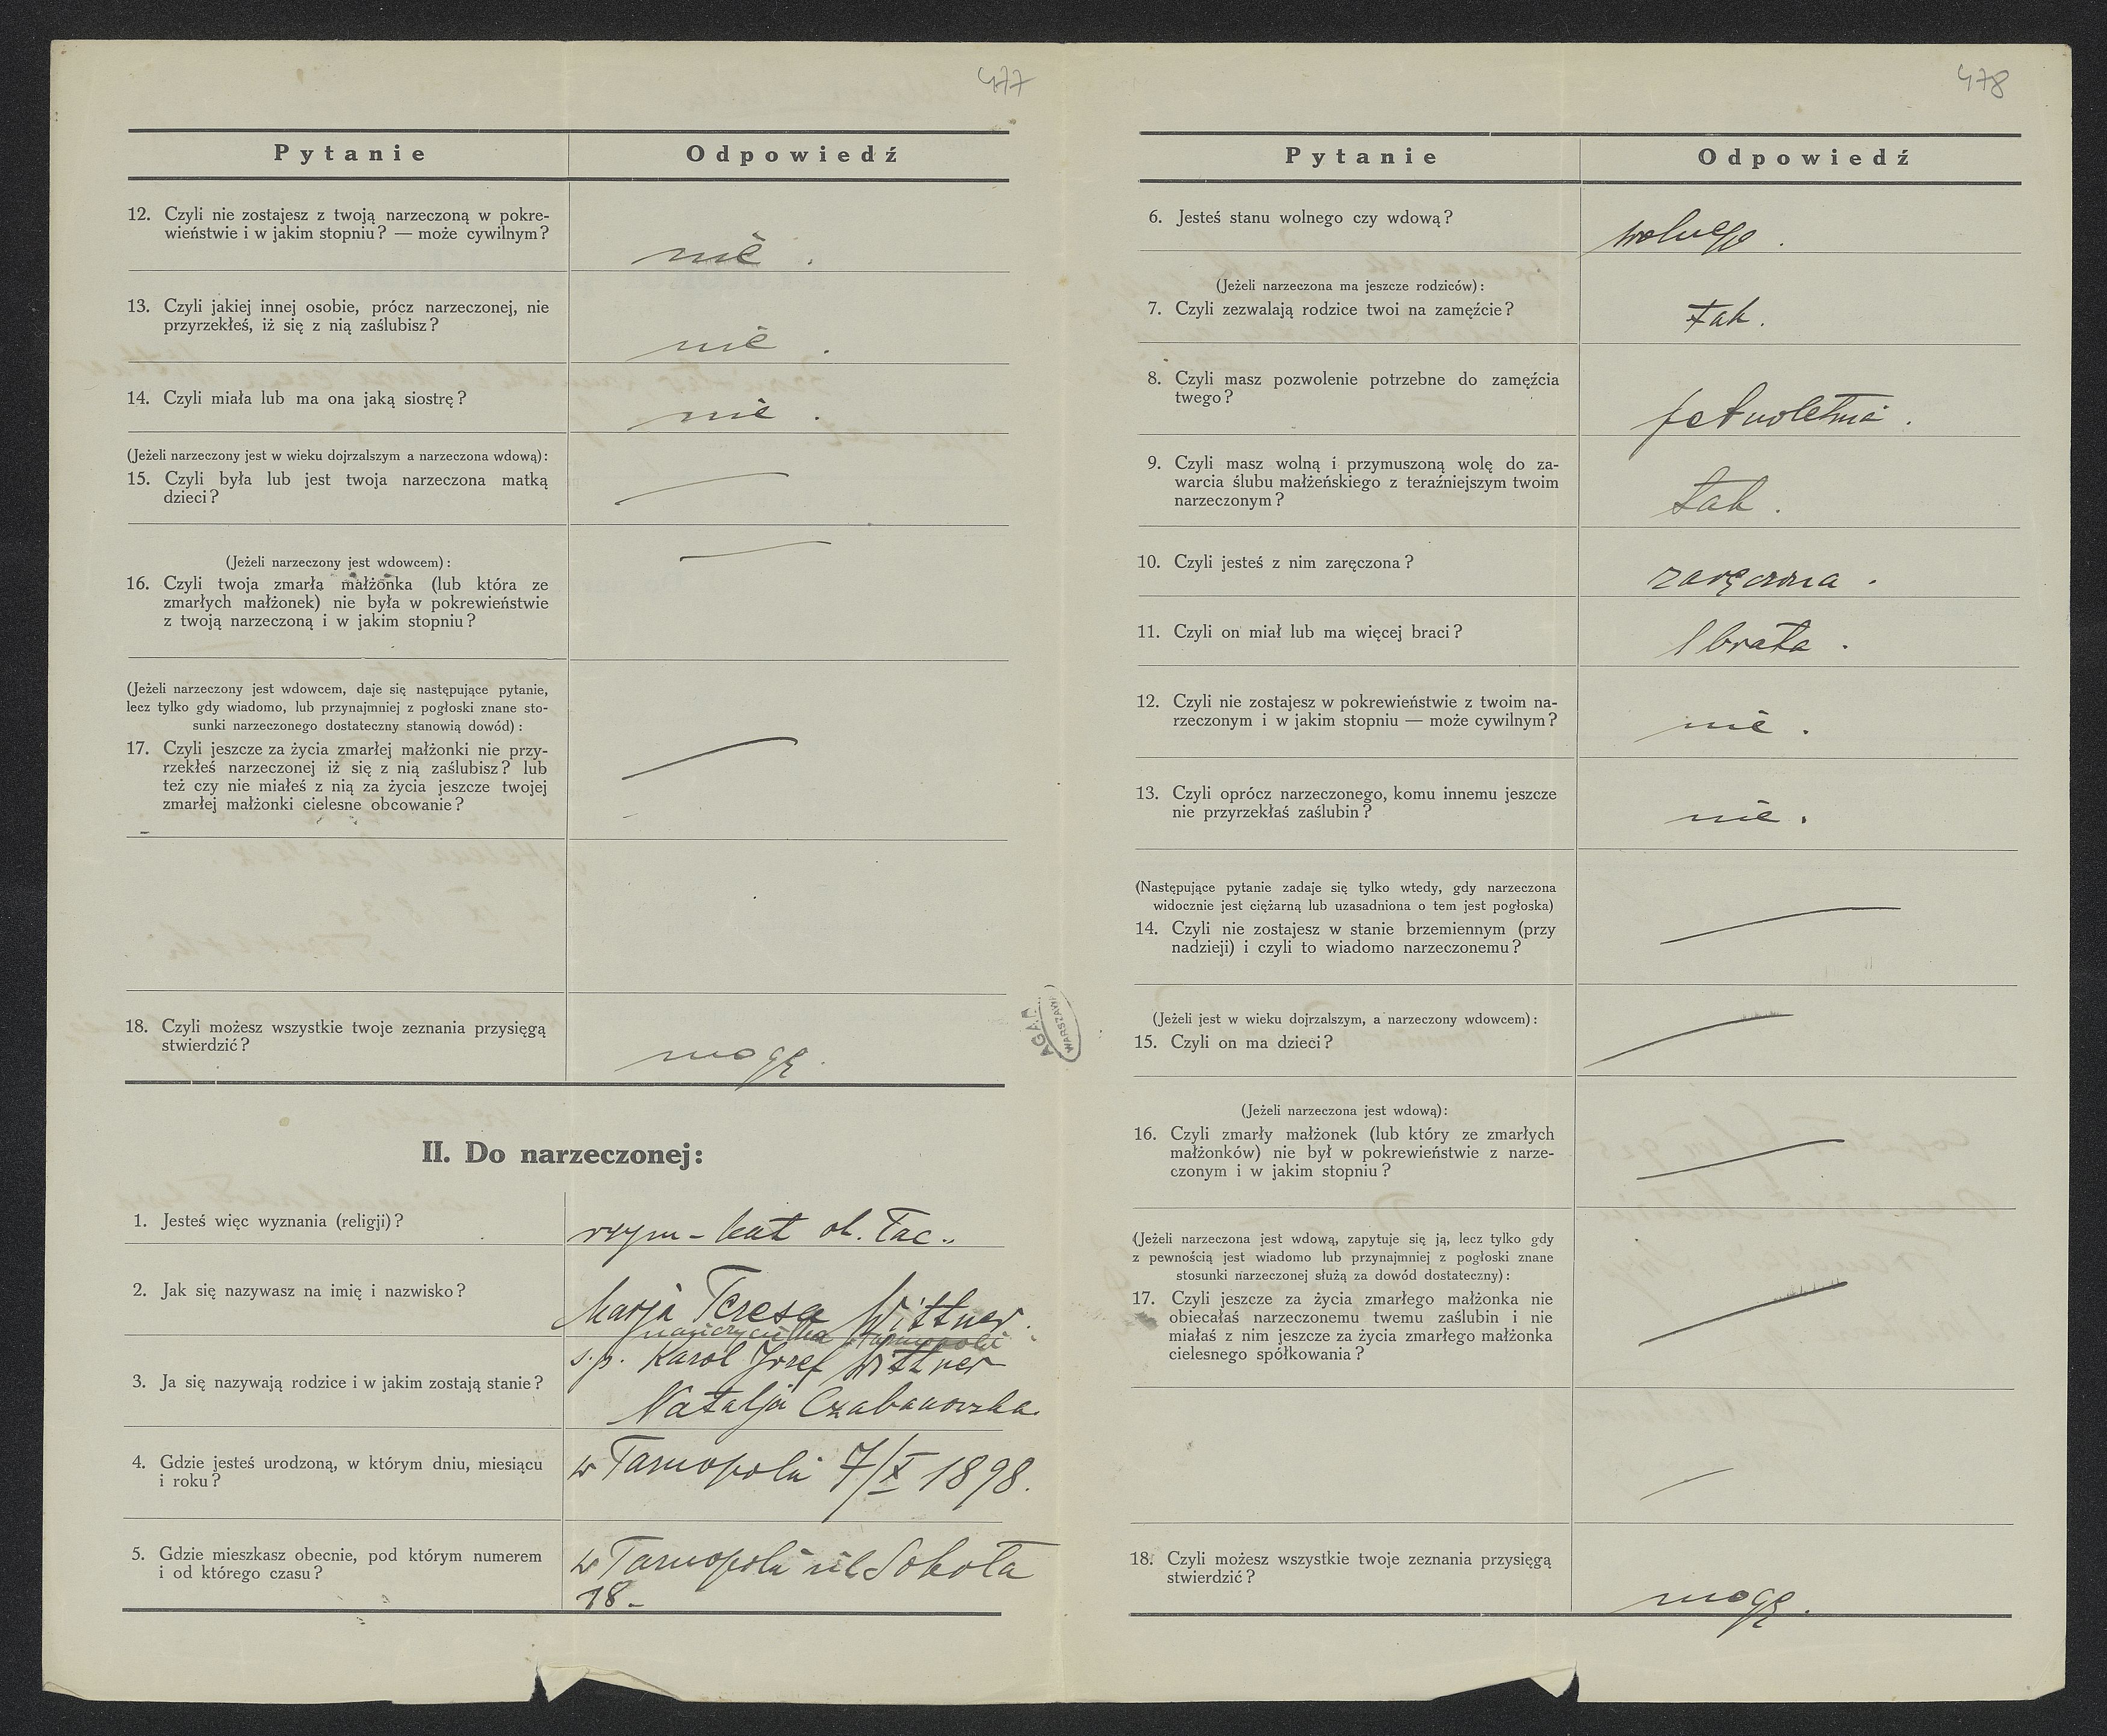 477
Pytanie
Odpowiedź
12. Czyli nie zostajesz z twoją narzeczoną w pokre-
wieństwie i w jakim stopniu? — może cywilnym?
nie.
13. Czyli jakiej innej osobie, prócz narzeczonej, nie
przyrzekłeś, iż się z nią zaślubisz?
nie.
14. Czyli miała lub ma ona jaką siostrę?
nie.
(Jeżeli narzeczony jest w wieku dojrzalszym a narzeczona wdową):
15. Czyli była lub jest twoja narzeczona matką
dzieci?
(Jeżeli narzeczony jest wdowcem):
16. Czyli twoja zmarła małżonka (lub która ze
zmarłych małżonek) nie była w pokrewieństwie
z twoją narzeczoną i w jakim stopniu?
(Jeżeli narzeczony jest wdowcem, daje się następujące pytanie,
lecz tylko gdy wiadomo, lub przynajmniej z pogłoski znane sto-
sunki narzeczonego dostateczny stanowią dowód):
17. Czyli jeszcze za życia zmarłej małżonki nie przy-
rzekłeś narzeczonej iż się z nią zaślubisz? lub
też czy nie miałeś z nią za życia jeszcze twojej
zmarłej małżonki cielesne obcowanie?
18. Czyli możesz wszystkie twoje zeznania przysięgą
stwierdzić?
mogę.
II. Do narzeczonej:
1. Jesteś więc wyznania (religji)?
rzym-kat ob. łac.
2. Jak się nazywasz na imię i nazwisko?
Marja Teresa Wittner.
nauczycielka Tarnopolu
3. Ja się nazywają rodzice i w jakim zostają stanie?
s.p. Karol Józef Wittner
Natalja Czabanowska.
4. Gdzie jesteś urodzoną, w którym dniu, miesiącu
i roku?
w Tarnopolu 7/X 1898.
5. Gdzie mieszkasz obecnie, pod którym numerem
i od którego czasu?
w Tarnopolu ul Sokoła
18-
A.G.A.D.
WARSZAWA
478
Pytanie
Odpowiedź
6. Jesteś stanu wolnego czy wdową?
wolnego.
(Jeżeli narzeczona ma jeszcze rodziców):
7. Czyli zezwalają rodzice twoi na zamęźcie?
tak.
8. Czyli masz pozwolenie potrzebne do zamęźcia
twego?
pełnoletnia.
9. Czyli masz wolną i przymuszoną wolę do za-
warcia ślubu małżeńskiego z teraźniejszym twoim
narzeczonym?
tak.
10. Czyli jesteś z nim zaręczona?
zaręczona.
11. Czyli on miał lub ma więcej braci?
1 brata.
12. Czyli nie zostajesz w pokrewieństwie z twoim na-
rzeczonym i w jakim stopniu — może cywilnym?
nie.
13. Czyli oprócz narzeczonego, komu innemu jeszcze
nie przyrzekłaś zaślubin?
nie.
(Następujące pytanie zadaje się tylko wtedy, gdy narzeczona
widocznie jest ciężarną lub uzasadniona o tem jest pogłoska)
14. Czyli nie zostajesz w stanie brzemiennym (przy
nadzieji) i czyli to wiadomo narzeczonemu?
(Jeżeli jest w wieku dojrzalszym, a narzeczony wdowcem):
15. Czyli on ma dzieci?
(Jeżeli narzeczona jest wdową):
16. Czyli zmarły małżonek (lub który ze zmarłych
małżonków) nie był w pokrewieństwie z narze-
czonym i w jakim stopniu?
(Jeżeli narzeczona jest wdową, zapytuje się ją, lecz tylko gdy
z pewnością jest wiadomo lub przynajmniej z pogłoski znane
stosunki narzeczonej służą za dowód dostateczny):
17. Czyli jeszcze za życia zmarłego małżonka nie
obiecałaś narzeczonemu twemu zaślubin i nie
miałaś z nim jeszcze za życia zmarłego małżonka
cielesnego spółkowania?
18. Czyli możesz wszystkie twoje zeznania przysięgą
stwierdzić?
mogę.